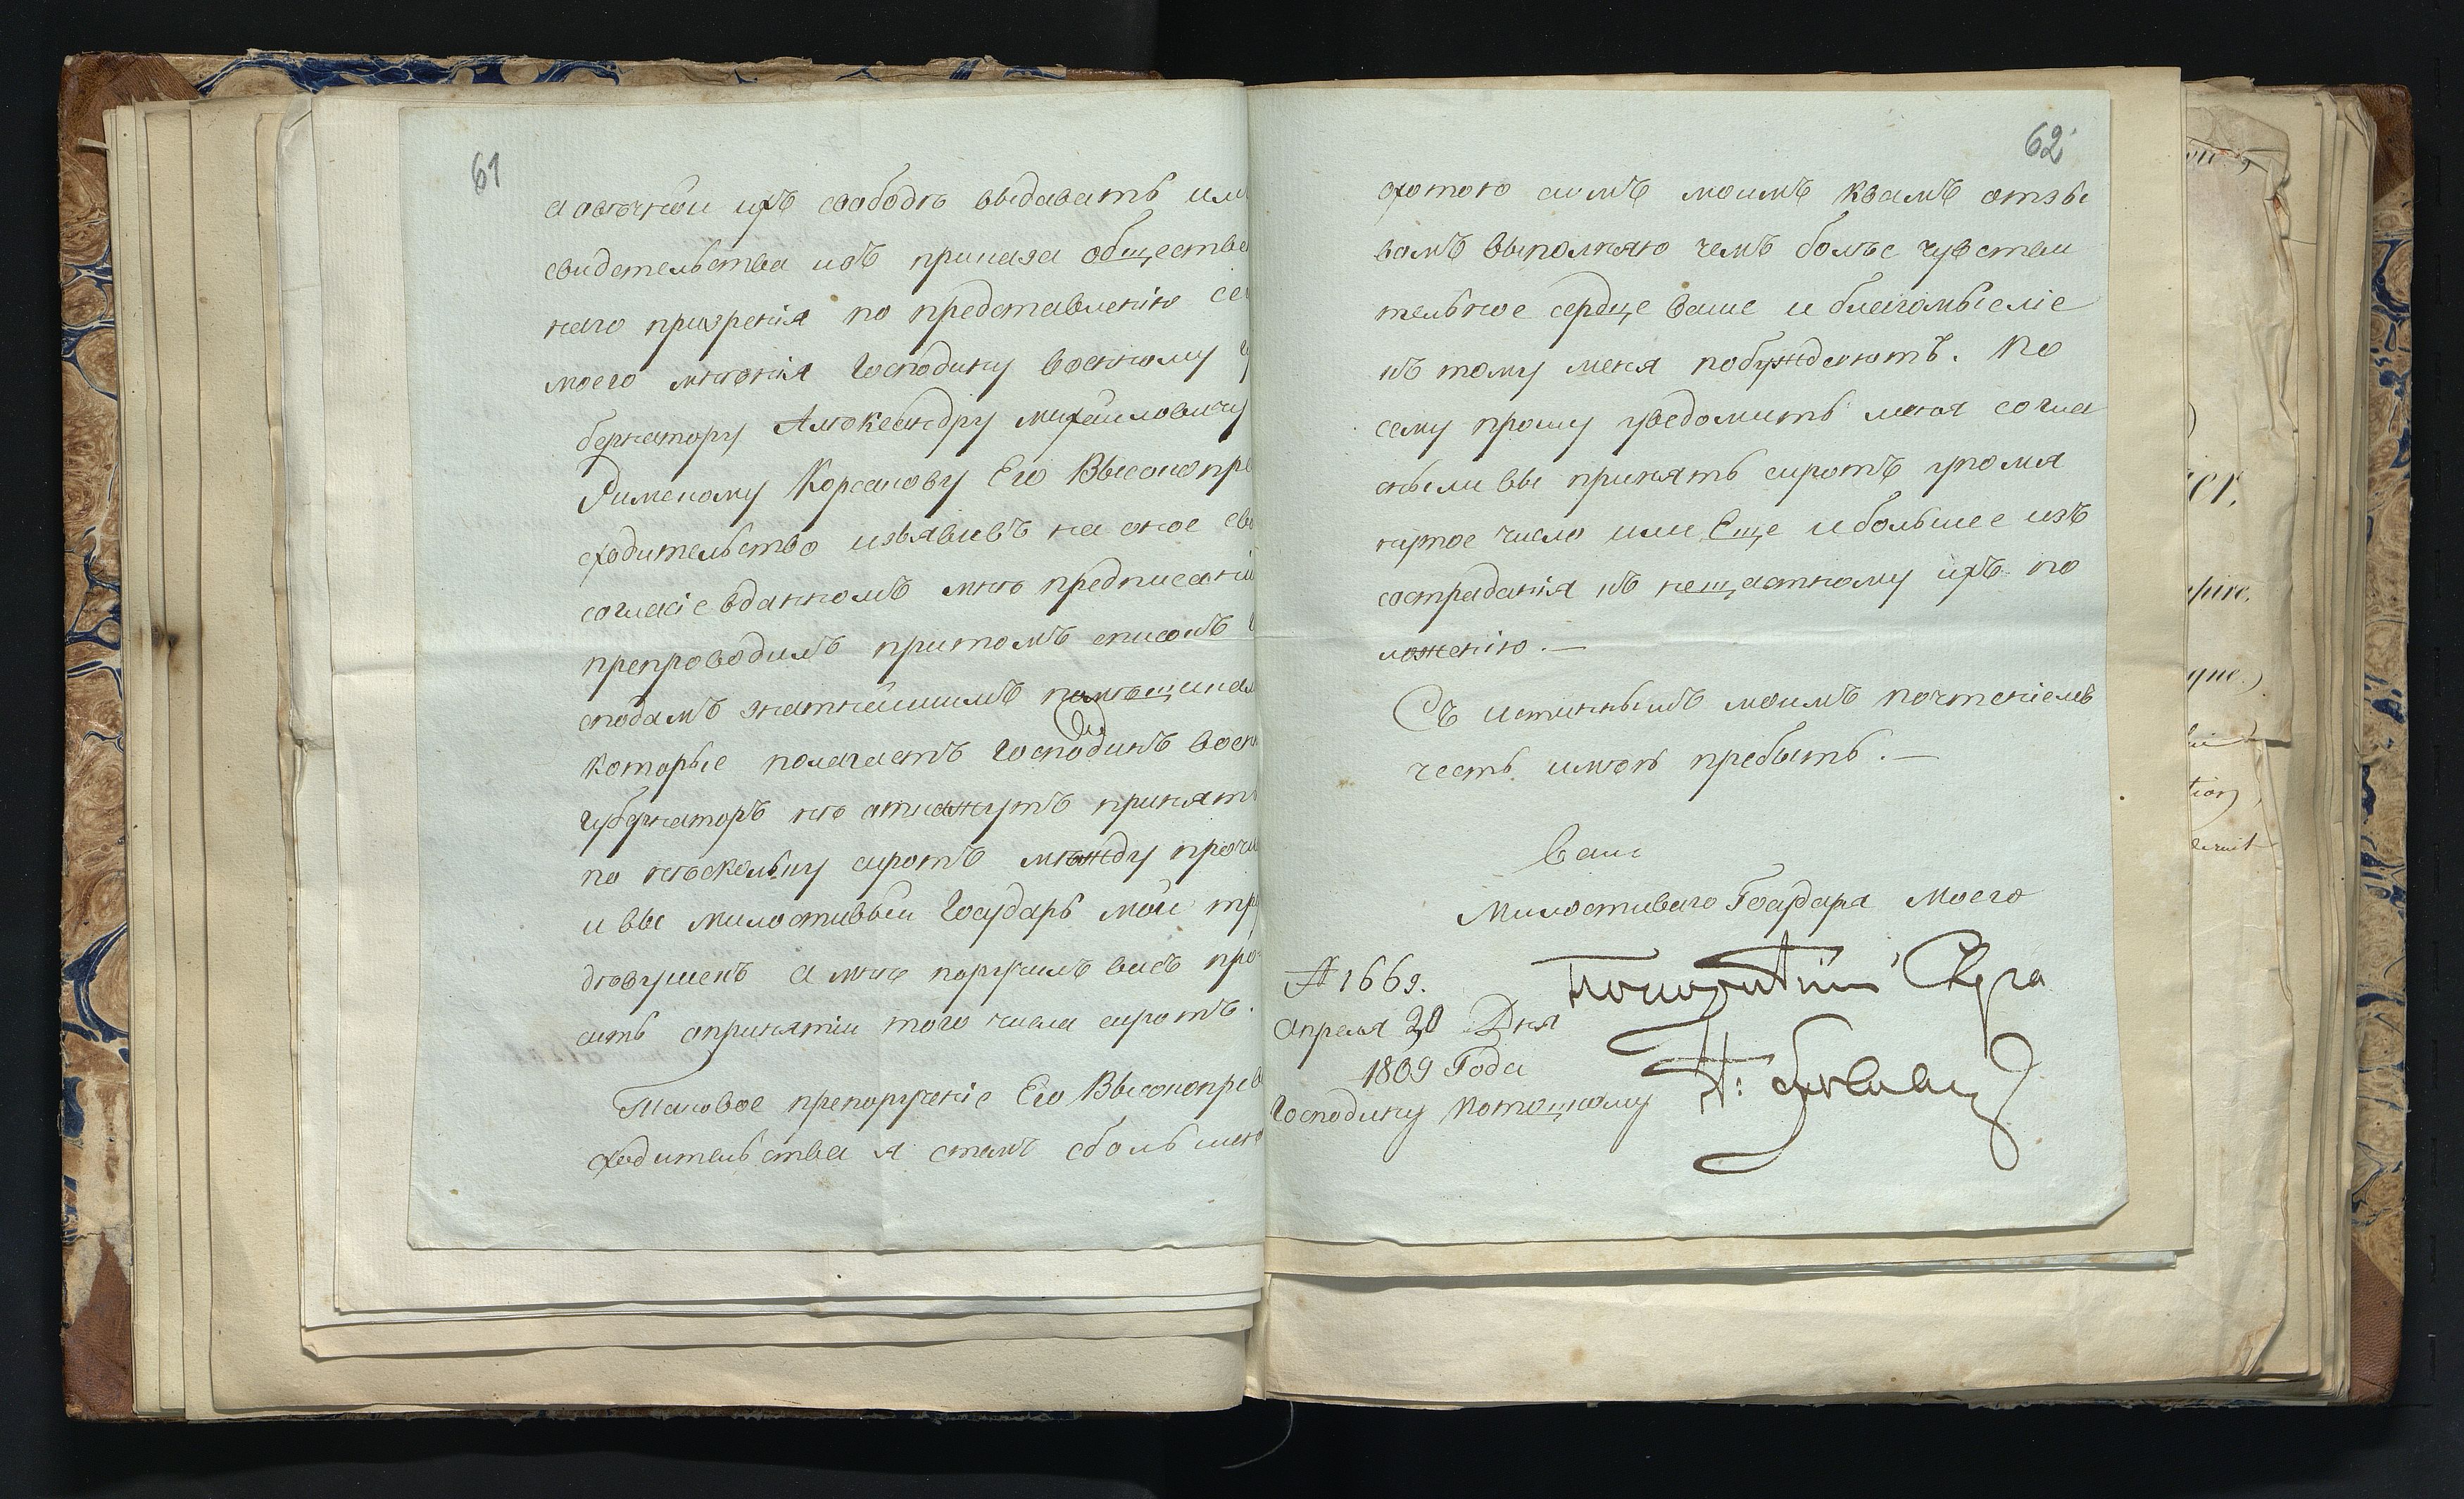 61
а овѣчной ихъ свободѣ выдавать им
свидетельства изъ приказа обществе
наго призрения по представлению се
моего мнѣния Господину Военному г
бернатору Алѣксандру михайловичу
Римскому Корсакову Его Высокопре
сходительство изъявивъ на оное сво
согласіе вданномъ мнѣ предписани
препроводилъ притомъ списокъ
сподамъ знатнейшимъ помѣщикам
которые полагаетъ Господинъ воен
Губернаторъ нѣ откажутъ принять
по нѣскольку сиротъ мѣжду прочи
и вы милостивый Государь мой тр
дѣвушекъ а мнѣ поручилъ васъ про
сить опринятіи того числа сиротъ.
Таковое препоручение Его Высокопрев
сходительства я стемъ сбольшею
62
охотою симъ моимъ квамъ отзы
вомъ выполняю чемъ болѣе чувстви
тельное сердце ваше и благомыслие
къ тому меня побуждаютъ. По
сему прошу уведомить меня согла
сныли вы принять сиротъ упомя
нутое число или Еще и большее изъ
сострадания къ нещастному ихъ по
ложению. —
Съ истиннымъ моимъ почтениемъ
честь имѣю пребыть. —
Ваш
Милостиваго Государя Моего
№ 1669.
Апреля 20 Дня
1809 Года
Господину Потоцкому
Покорный Слуга